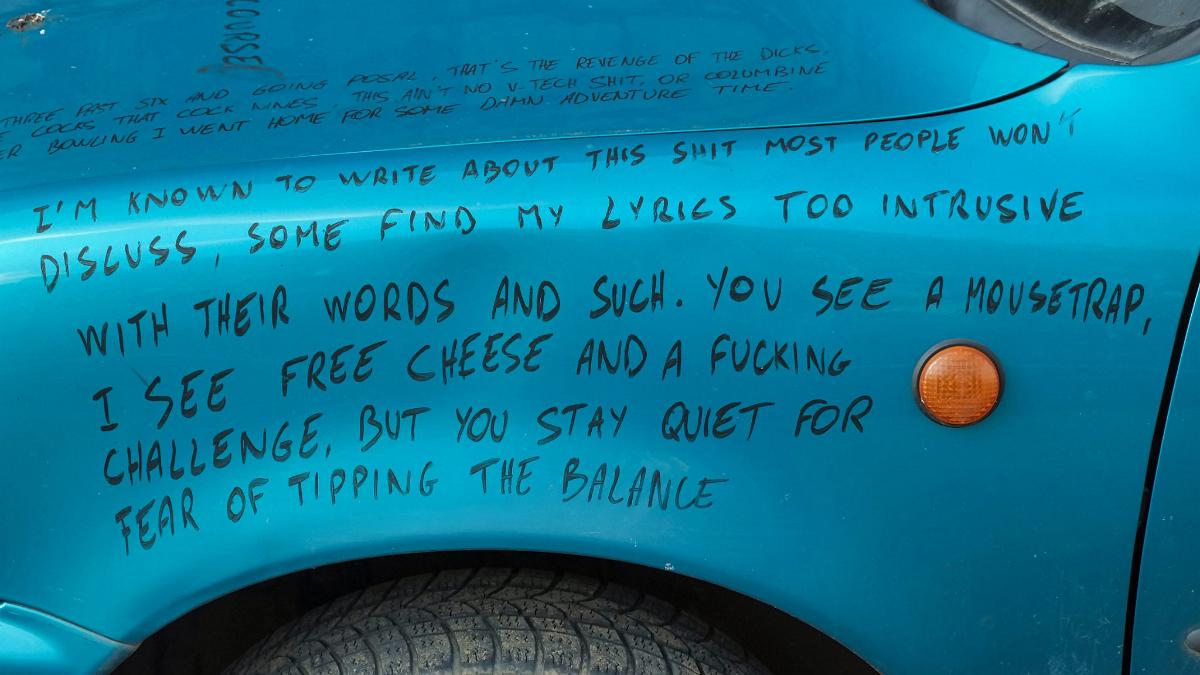 COURSE
THREE PAST SIX AND GOING POSAL, THAT'S THE REVENGE OF THE DICKS.
COCKS THAT COCK NINES, THIS AIN'T NO V-TECH SHIT, OR COLUMBINE
BOWLING I WENT HOME FOR SOME DAMN ADVENTURE TIME.
I'M KNOWN TO WRITE ABOUT THIS SHIT MOST PEOPLE WON'T
DISCUSS, SOME FIND MY LYRICS TOO INTRUSIVE
WITH THEIR WORDS AND SUCH. YOU SEE A MOUSETRAP,
I SEE FREE CHEESE AND A FUCKING
CHALLENGE, BUT YOU STAY QUIET FOR
FEAR OF TIPPING THE BALANCE